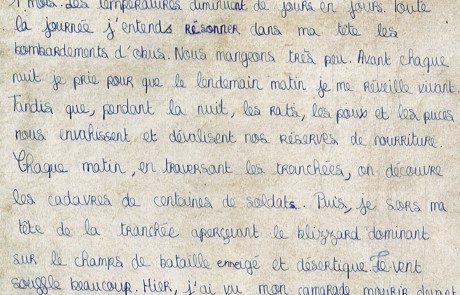 1 mois. Les températures diminuent de jours en jours. Toute
la journée j'entends résonner dans ma tête les
bombardements d'obus. Nous mangeons très peu. Avant chaque
nuit je prie pour que le lendemain matin je me réveille vivant.
Tandis que, pendant la nuit, les rats, les poux et les puces
nous envahissent et dévalisent nos réserves de nourriture.
Chaque matin, en traversant les tranchées, on découvre
les cadavres de centaines de soldats. Puis, je sors ma
tête de la tranchée aperçevant le blizzard dominant
sur le champs de bataille enneigé et désertique. Le vent
souffle beaucoup. Hier, j'ai vu mon camarade mourir devant